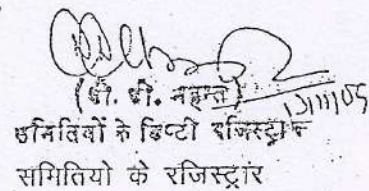 (बी. बी. महन्त)
13/11/05
समितियों के डिप्टी रजिस्ट्रार
समितियो के रजिस्ट्रार